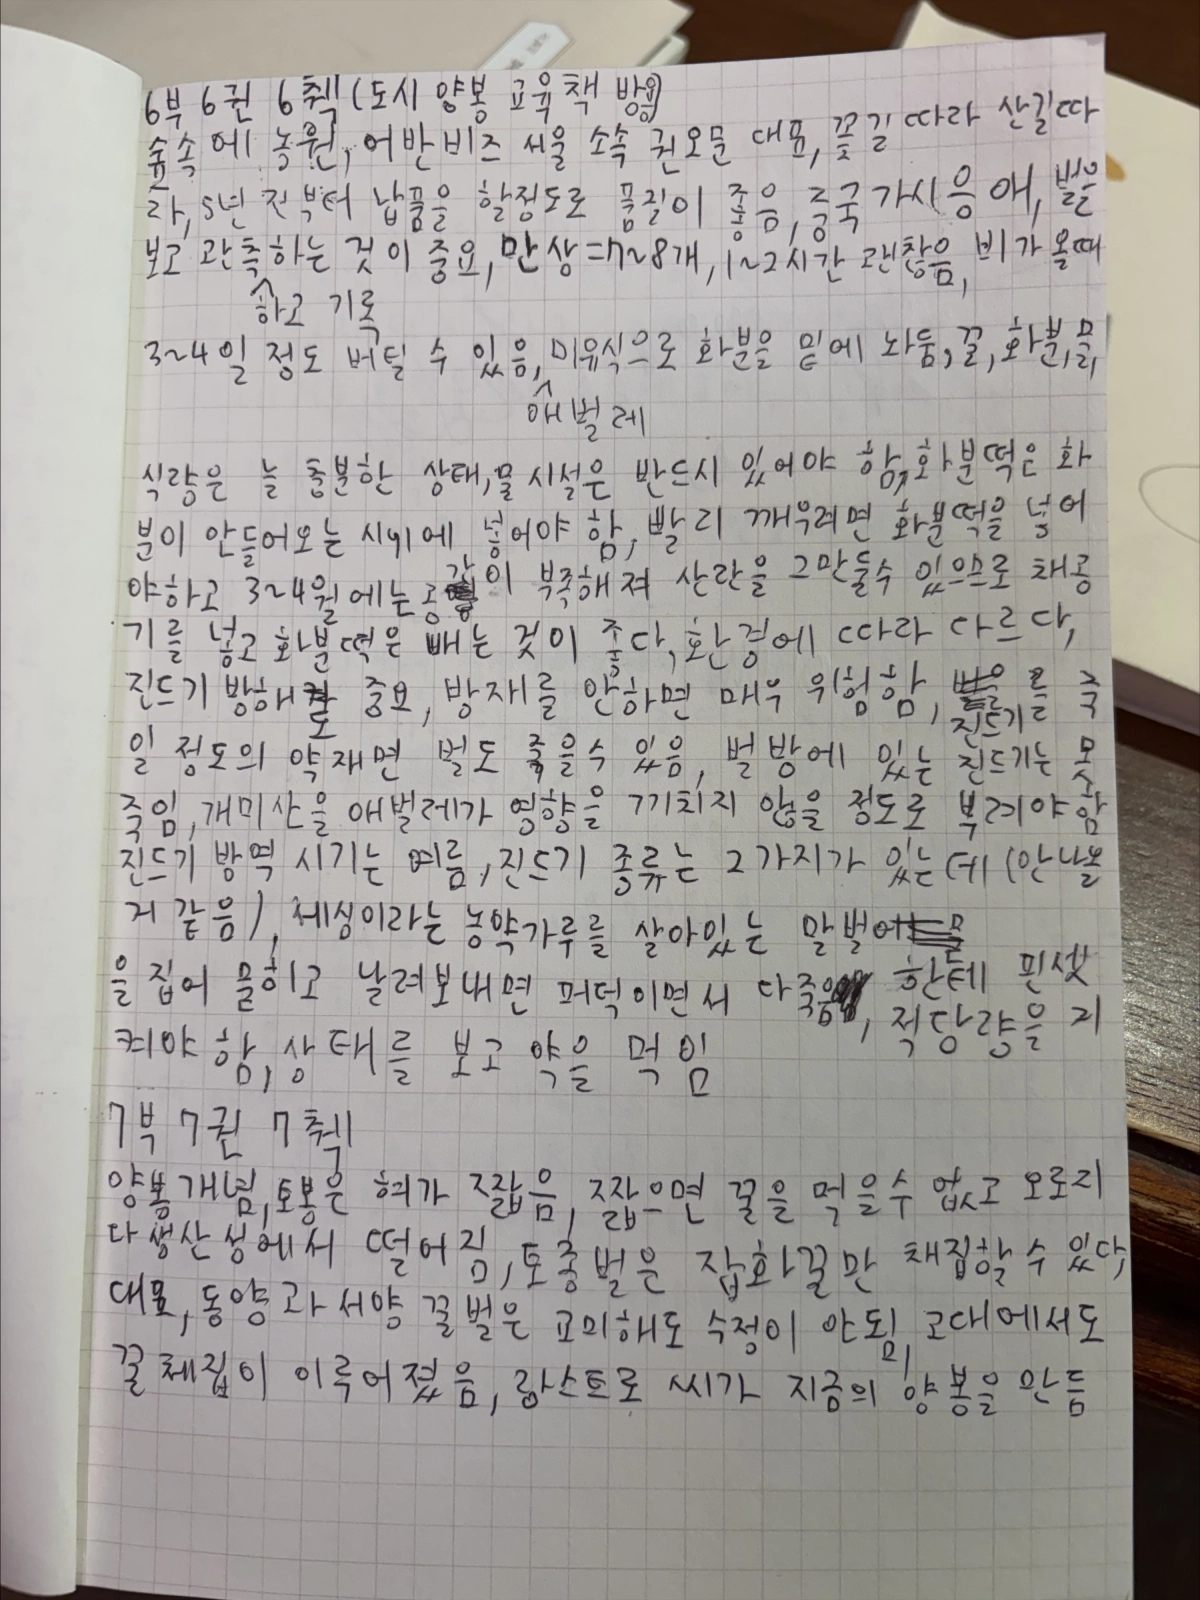 6부 6권 6췍 (도시 양봉 교육책 방용)
숲속에 농원, 어반비즈 서울 소속 권오문 대표, 꽃길 따라 산길따
라, 5년 전부터 납품을 할정도로 품질이 좋음, 중국 가시응애, 벌을
보고 관측하는 것이 중요, 만상=7~8개, 1~2시간 괜찮음, 비가 올때
하고 기록
3~4일 정도 버틸 수 있음, 미유식으로 화분을 밑에 놔둠, 꿀, 화분, 물,
애벌레
식량은 늘 충분한 상태, 물 시설은 반드시 있어야 함, 화분떡은 화
분이 안들어오는 시기에 넣어야 함, 빨리 깨우려면 화분떡을 넣어
야하고 3~4월에는 공간이 부족해져 산란을 그만둘수 있으므로 채광
기를 넣고 화분떡은 빼는 것이 좋다, 환경에 따라 다르다,
진드기 방해도 중요, 방재를 안하면 매우 위험함, 진드기를 죽
일 정도의 약재면 벌도 죽을수 있음, 벌방에 있는 진드기는 못
죽임, 개미산을 애벌레가 영향을 끼치지 않을 정도로 뿌려야 함
진드기 방역 시기는 여름, 진드기 종류는 2가지가 있는데 (안나올
거 같음), 세싱이라는 농약가루를 살아있는 말벌
을 집어 물히고 날려보내면 퍼덕이면서 다죽음, 한테 핀셋
적당량을 지
켜야 함, 상태를 보고 약을 먹임
7부 7권 7췍
양봉개념, 토봉은 혀가 짧음, 짧으면 꿀을 먹을수 없고 오로지
다생산성에서 떨어짐, 토종벌은 잡화꿀만 채집할 수 있다,
대표, 동양과 서양 꿀벌은 교미해도 수정이 안됨, 고대에서도
꿀 체집이 이루어졌음, 랑스토로 씨가 지금의 양봉을 만듬